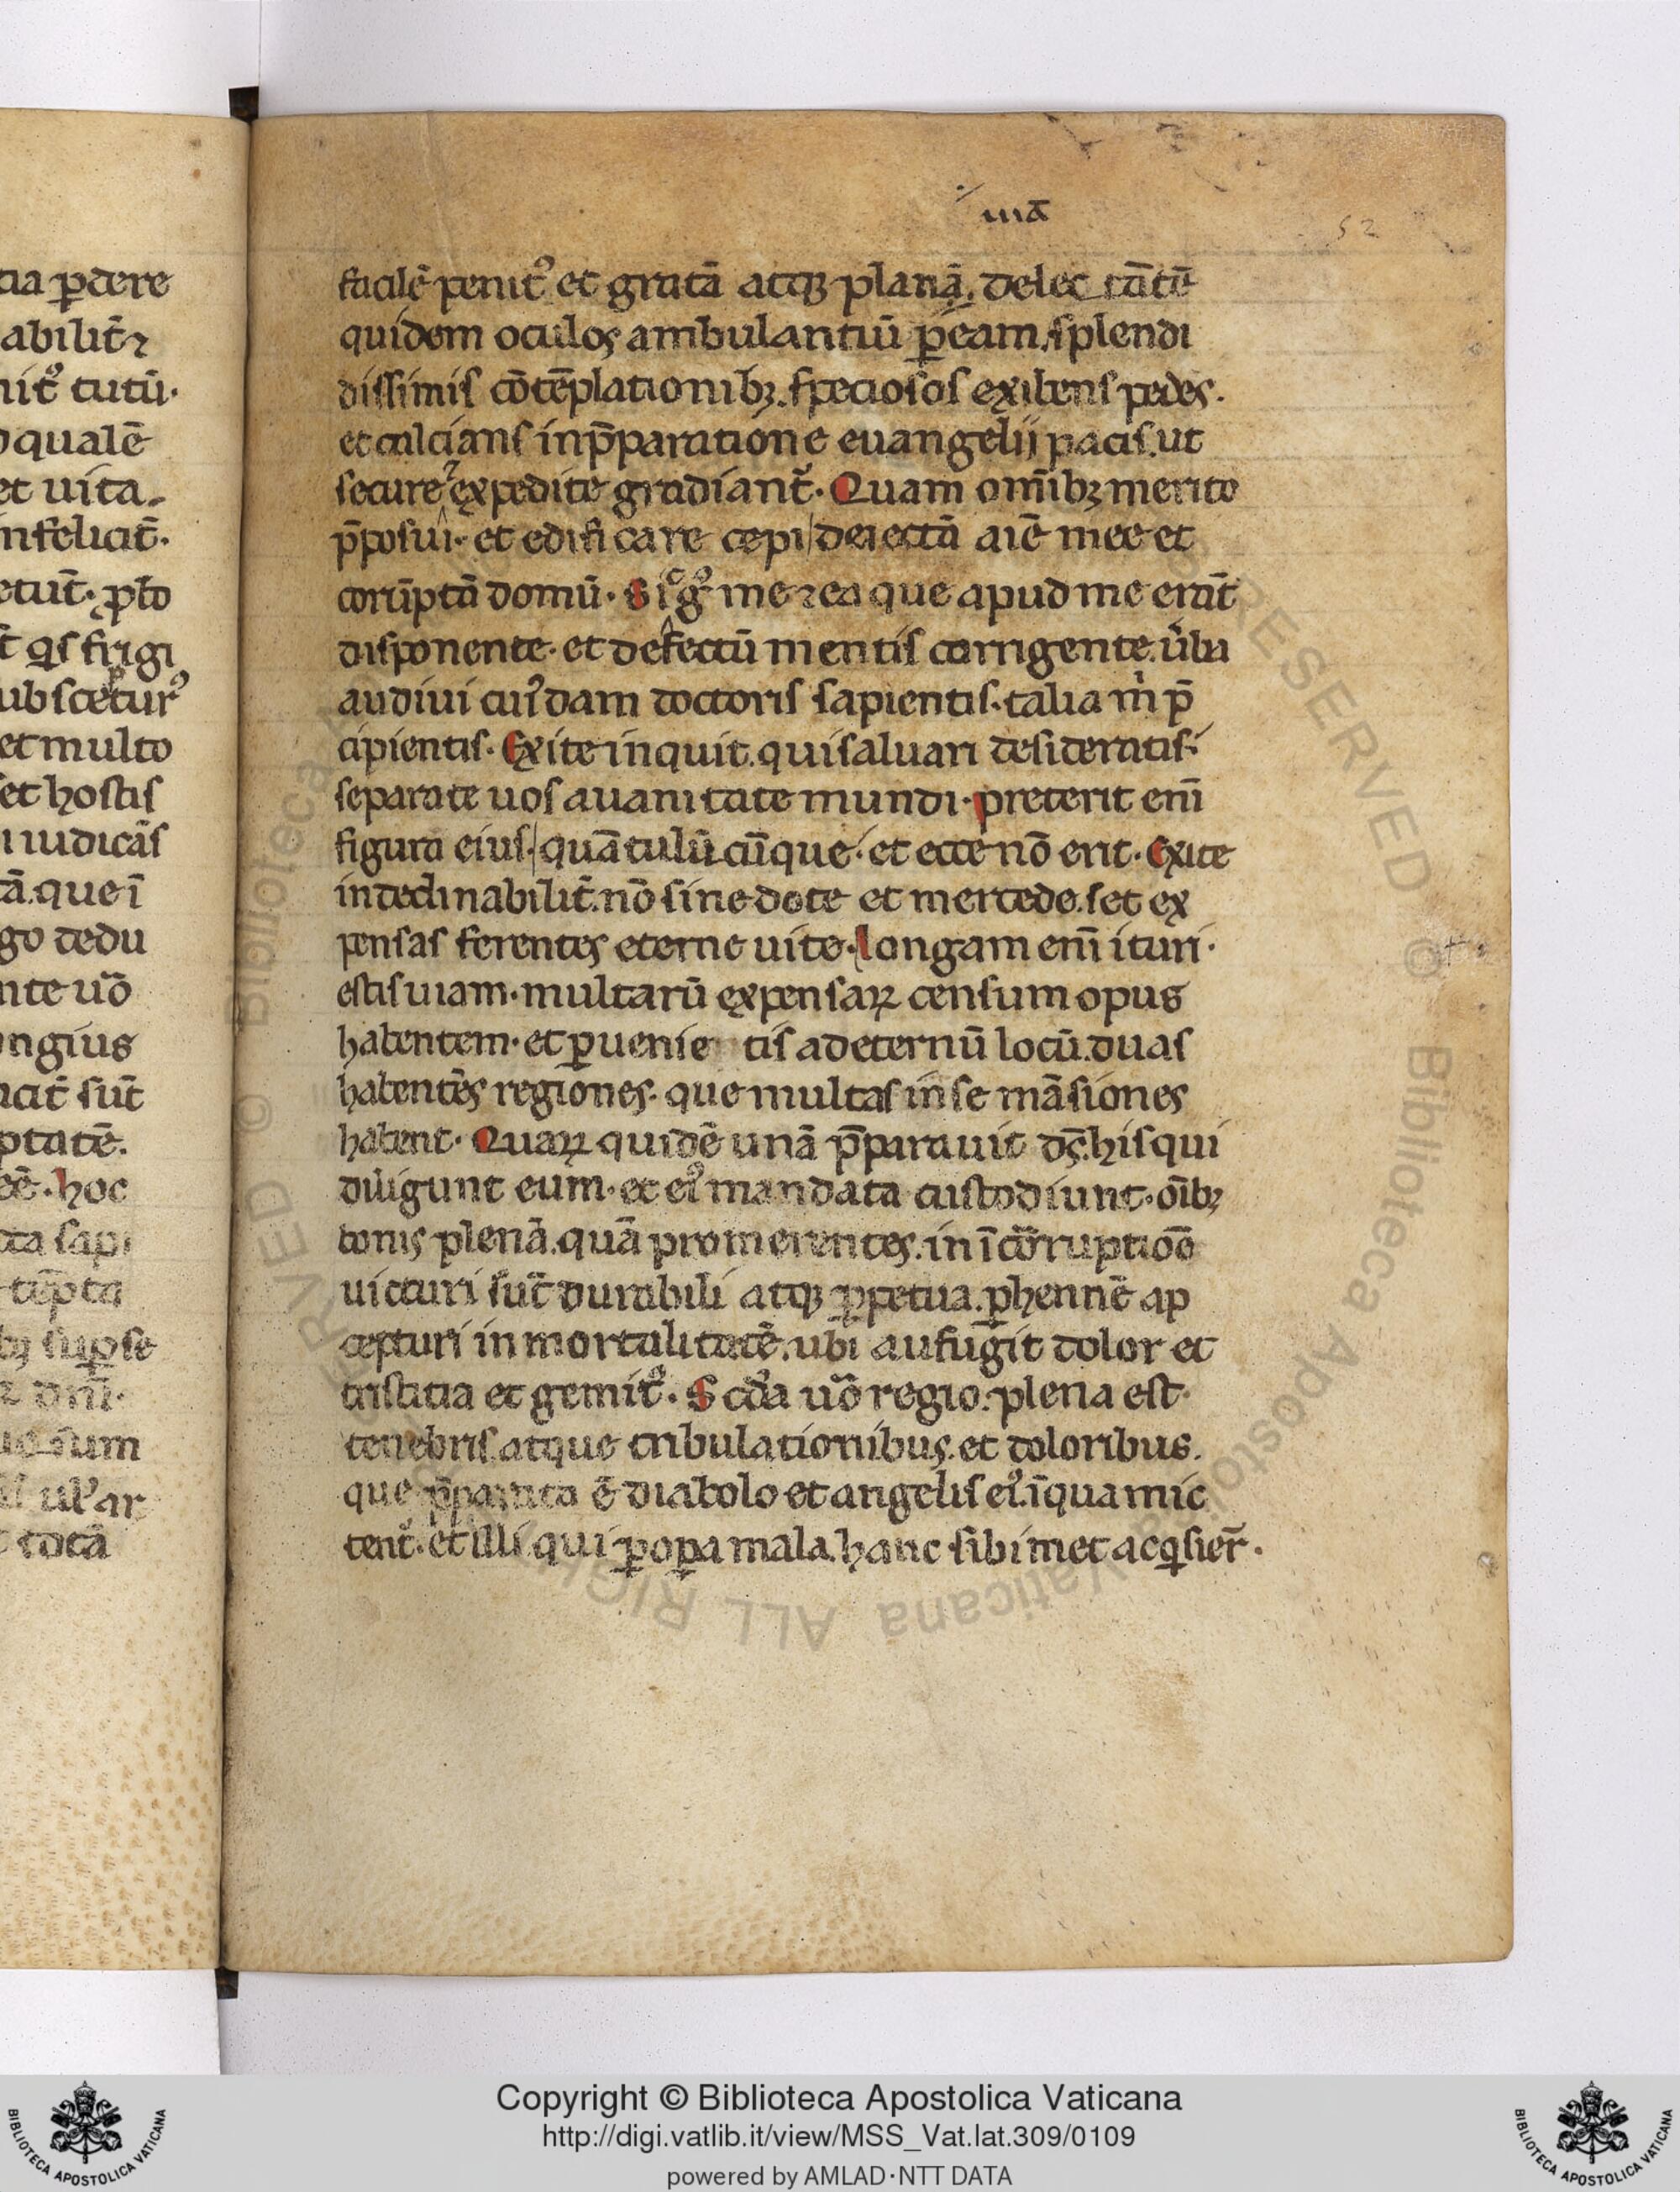 uiā
52
facilē penit᾿ et gratā atqꝫ planā. delectātē
quidem oculos ambulantiū ꝑ eam. splendi
dissimis cōtēplationibꝫ. speciosos exibens pedes.
et calcians in p̄paratione euangelii pacis. ut
secure ꝛ expedite gradiant᷑. Quam om̄ibꝫ merito
p̄posui. et edificare cepi deiectā aīe mee et
corūptā domū. Sic g᷒ me ꞇ ea que apud me erāt
disponente. et defectū mentis corrigente. ūba
audiui cui᷒dam doctoris sapientis. talia m̍ p̄
cipientis. Exite inquit. qui saluari desideratis.
separate uos a uanitate mundi. preterit eni̅
figura eius. quātulū cūque. et ecce nō erit. Exite
indeclinabilit̄. nō sine dote et mercede. set ex
pensas ferentes eterne uite. longam eni̅ ituri.
estis uiam. multarū expensaꝝ censum opus
habentem. et ꝑuenietis ad eternū locū. duas
habentēs regiones. que multas in se māsiones
habent. Quaꝝ quidē unā p̄parauit ds̄. his qui
diligunt eum. et ei᷒ mandata custodiunt. oībꝫ
bonis plenā. quā promerentes. in īcorruptiōe
uicturi sūt durabili atqꝫ ꝑpetua. ꝑhennē ap
cepturi inmortalitatē. ubi aufugit dolor et
tristitia et gemit᷒. Scd̄a uō regio. plena est.
tenebris. atque tribulationibus. et doloribus.
que p̄parata ē diabolo et angelis ei᷒. ī qua mic
tent᷑. et illi qui ꝑ oꝑa mala. hanc sibimet acq̇sier̄.
tia ꝑdere
abilit̄ ꞇ
nit᷒ tutū.
qualē
et uita
nfelicit̄.
qs frigi
et multo
et hostis
iudicās
tā. que ī
go dedu
nte uō
ngius
sūt
ptatē.
hoc
sapi
sum
totā
© Biblioteca Apostolica Vaticana ALL RIGHTS RESERVED
Copyright © Biblioteca Apostolica Vaticana
http://digi.vatlib.it/view/MSS_Vat.lat.309/0109
powered by AMLAD·NTT DATA
BIBLIOTECA APOSTOLICA VATICANA
BIBLIOTECA APOSTOLICA VATICANA